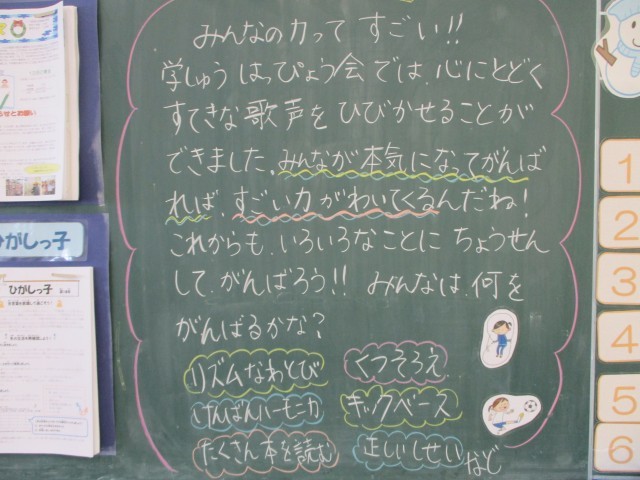 みんなの力って すごい!!
学しゅう はっぴょう会 では、心にとどく
すてきな歌声を ひびかせることが
できました。みんなが本気になってがんば
れば、すごい力がわいてくるんだね!
これからも、いろいろなことに ちょうせん
して、がんばろう!! みんなは、何を
がんばるかな?
リズムなわとび
くつそろえ
けんばんハーモニカ
キックベース
たくさん本を読む
正しいしせい など
ひがしっ子
ひがしっ子
1
2
3
4
5
6